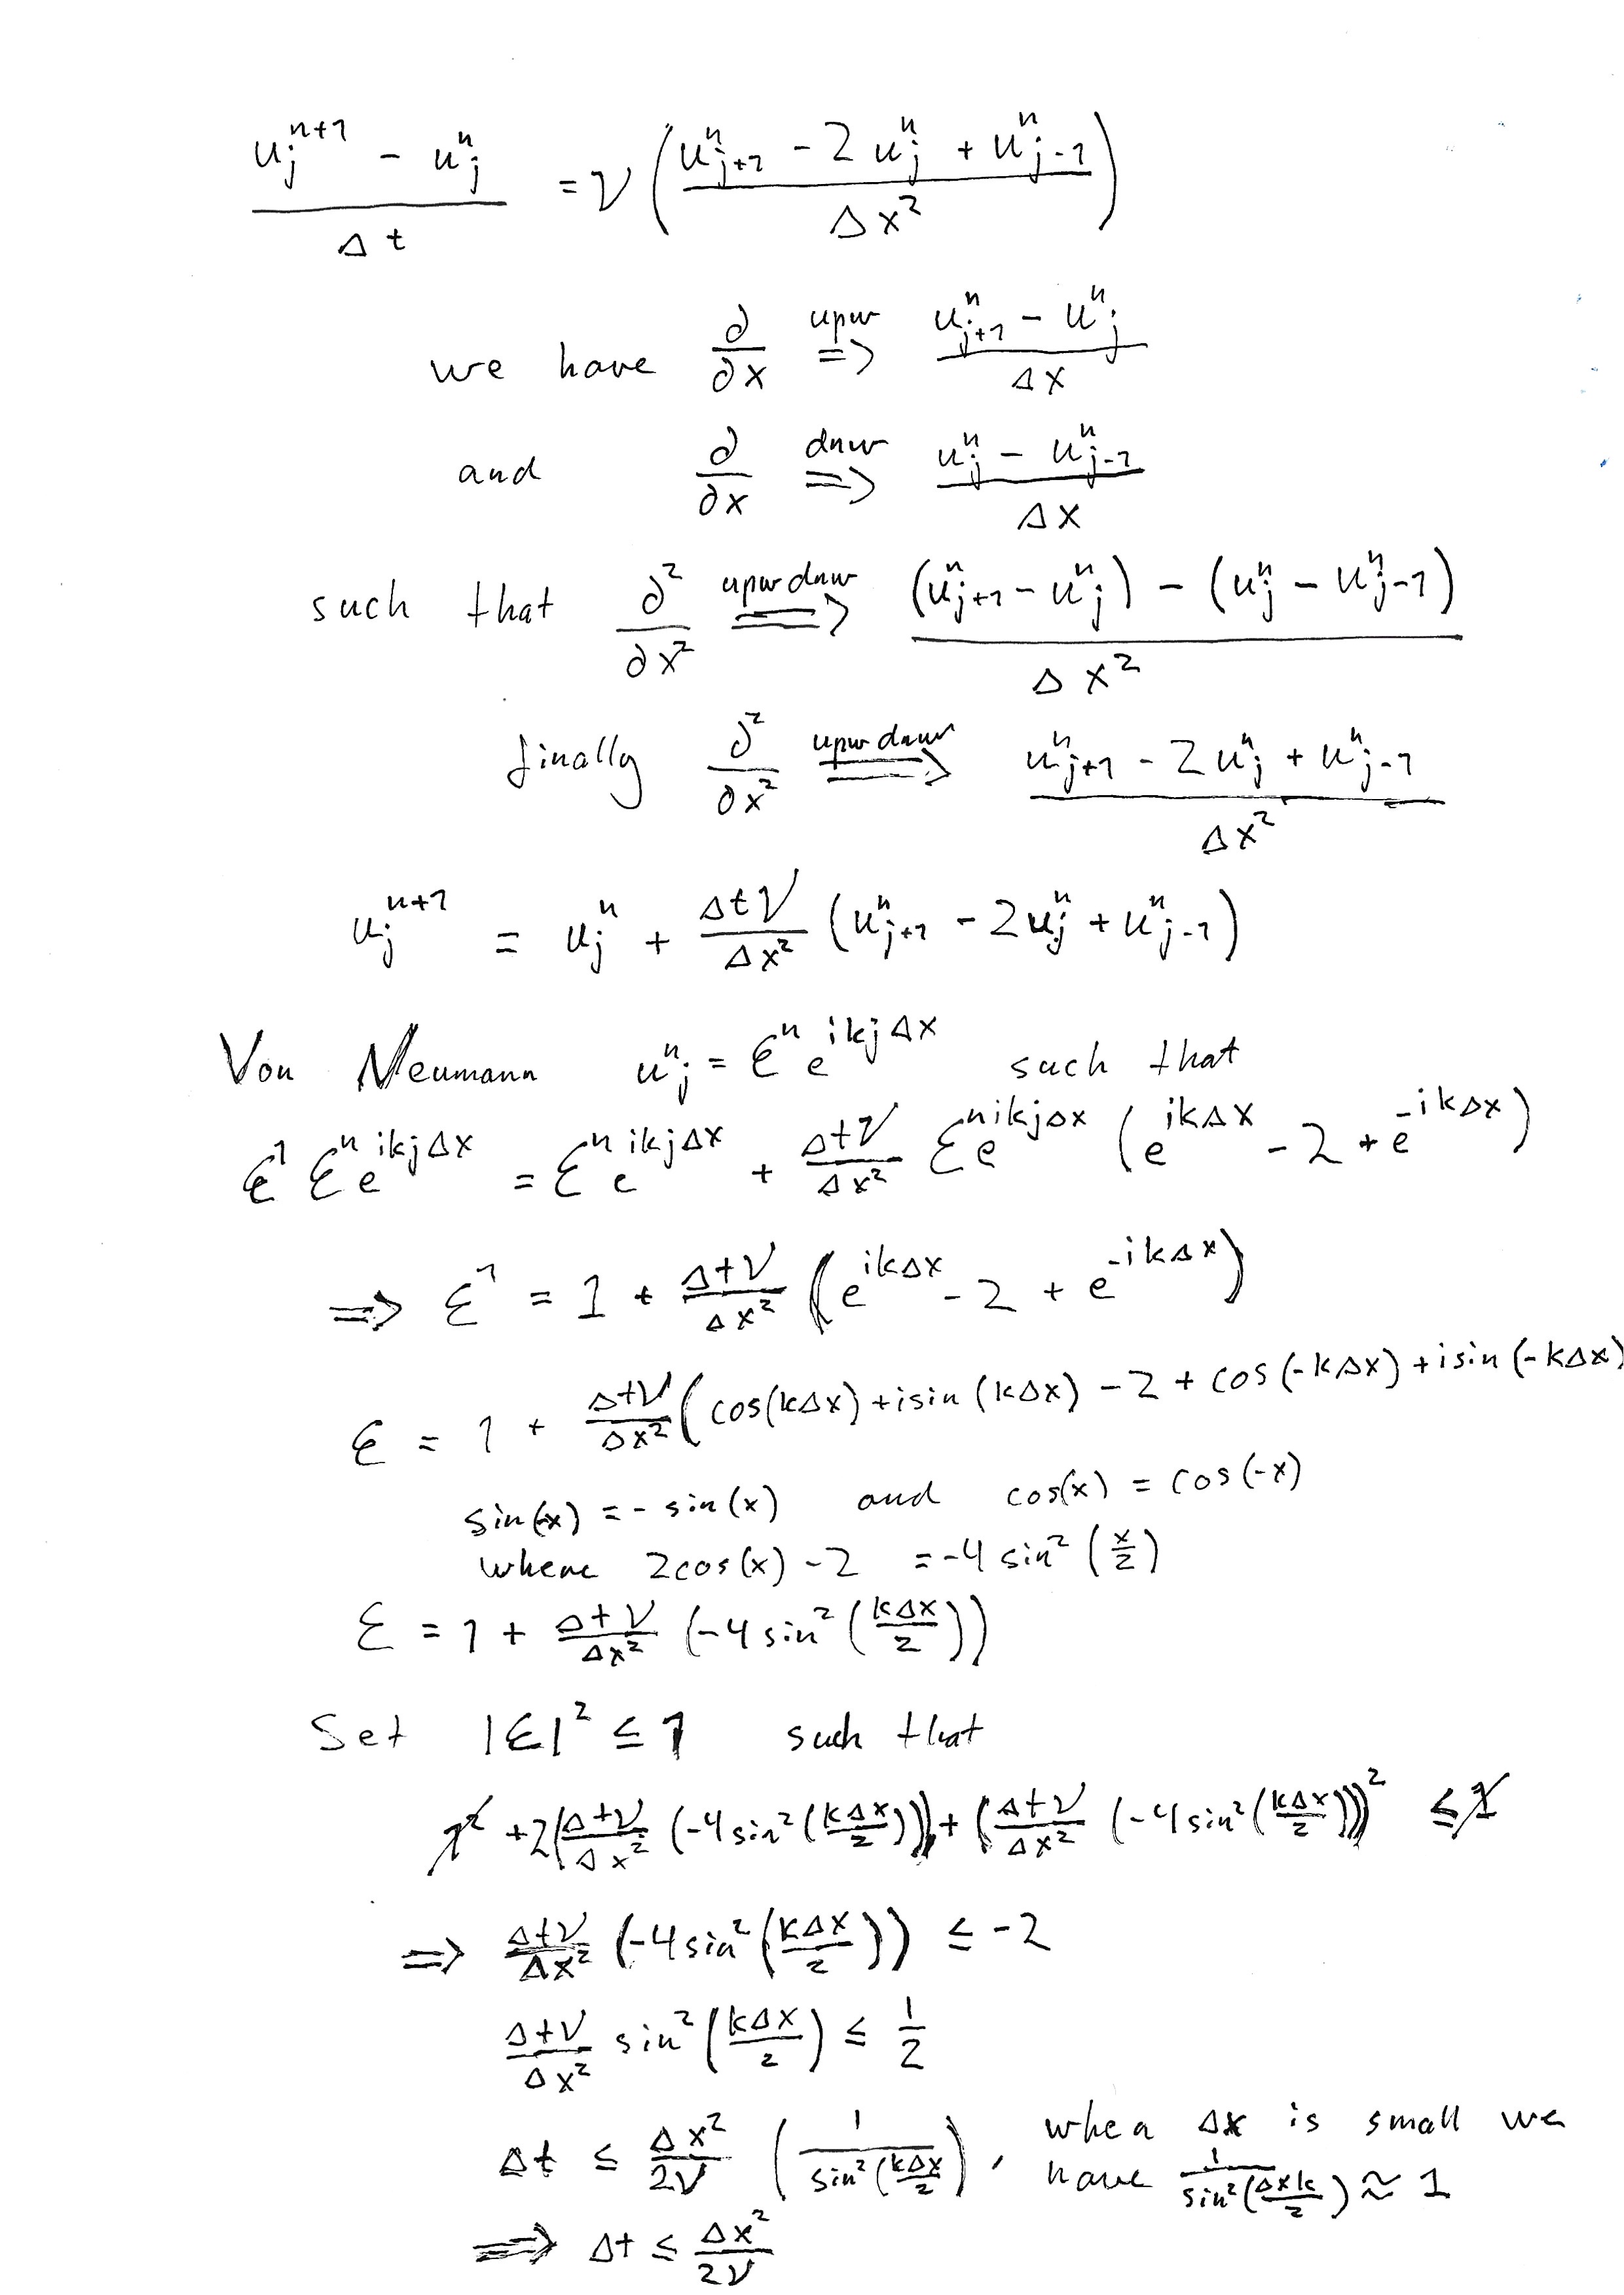 (u_j^{n+1} - u_j^n) / Δt = ν ( (u_{j+1}^n - 2 u_j^n + u_{j-1}^n) / Δx² )
we have ∂/∂x upw => (u_{j+1}^n - u_j^n) / Δx
and ∂/∂x dnw => (u_j^n - u_{j-1}^n) / Δx
such that ∂²/∂x² upw dnw => ((u_{j+1}^n - u_j^n) - (u_j^n - u_{j-1}^n)) / Δx²
finally ∂²/∂x² upw dnw => (u_{j+1}^n - 2 u_j^n + u_{j-1}^n) / Δx²
u_j^{n+1} = u_j^n + (Δtν/Δx²) (u_{j+1}^n - 2u_j^n + u_{j-1}^n)
Von Neumann u_j^n = ε^n e^{ikjΔx} such that
ε^1 ε^n e^{ikjΔx} = ε^n e^{ikjΔx} + (Δtν/Δx²) ε^n e^{ikjΔx} (e^{ikΔx} - 2 + e^{-ikΔx})
=> ε^1 = 1 + (Δtν/Δx²) (e^{ikΔx} - 2 + e^{-ikΔx})
ε = 1 + (Δtν/Δx²) (cos(kΔx) + isin(kΔx) - 2 + cos(-kΔx) + isin(-kΔx)
sin(-x) = - sin(x) and cos(x) = cos(-x)
where 2cos(x) - 2 = -4 sin² (x/2)
ε = 1 + (Δtν/Δx²) (-4 sin² (kΔx/2))
Set |ε|² ≤ 1 such that
1² + 2((Δtν/Δx²) (-4 sin² (kΔx/2))) + ((Δtν/Δx²) (-4 sin² (kΔx/2)))² ≤ 1
=> (Δtν/Δx²) (-4 sin² (kΔx/2)) ≤ -2
(Δtν/Δx²) sin² (kΔx/2) ≤ 1/2
Δt ≤ (Δx²/2ν) (1/sin²(kΔx/2)), when Δx is small we
have 1/sin²(Δxk/2) ≈ 1
=> Δt ≤ Δx²/2ν